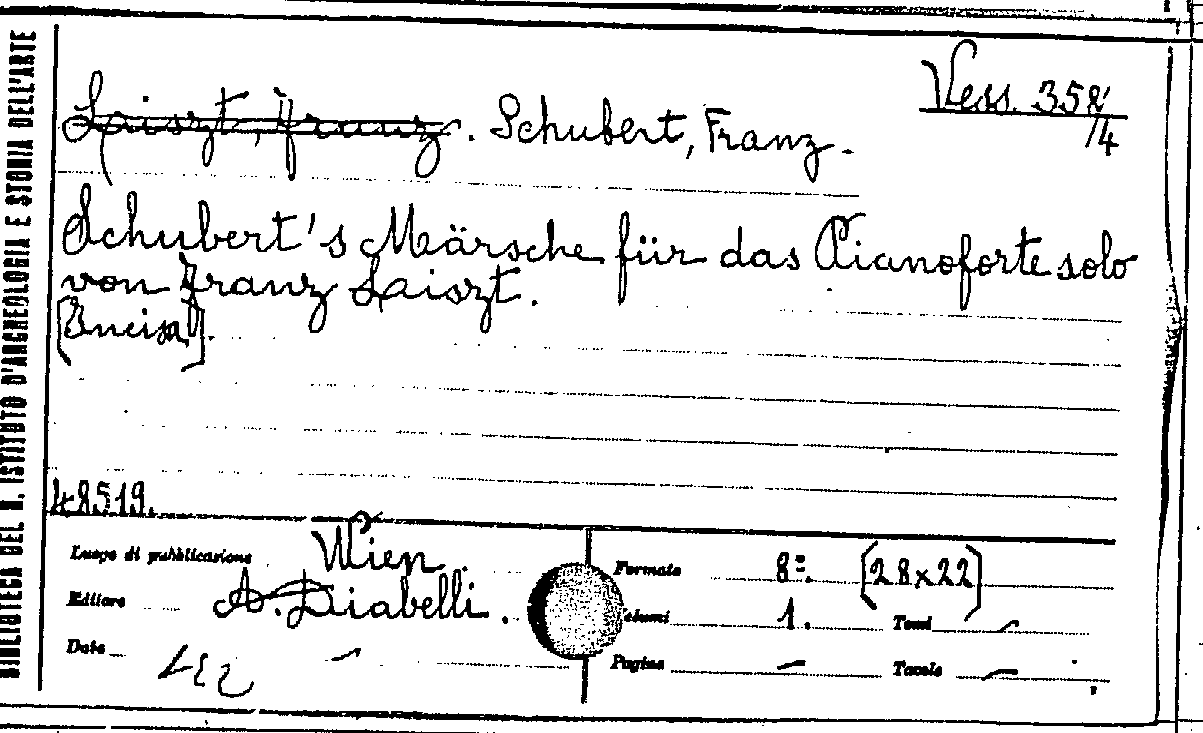 BIBLIOTECA DEL R. ISTITUTO D'ARCHEOLOGIA E STORIA DELL'ARTE
Vess. 358/4
Laiszt, Franz. Schubert, Franz.
Schubert's Märsche für das Pianoforte solo
von Franz Laiszt.
[Incisa].
48519.
Luogo di pubblicazione Wien.
Editore A. Diabelli.
Data –
Formato 8º. (28x22)
Volumi 1. Tomi –
Pagine – Tavole –